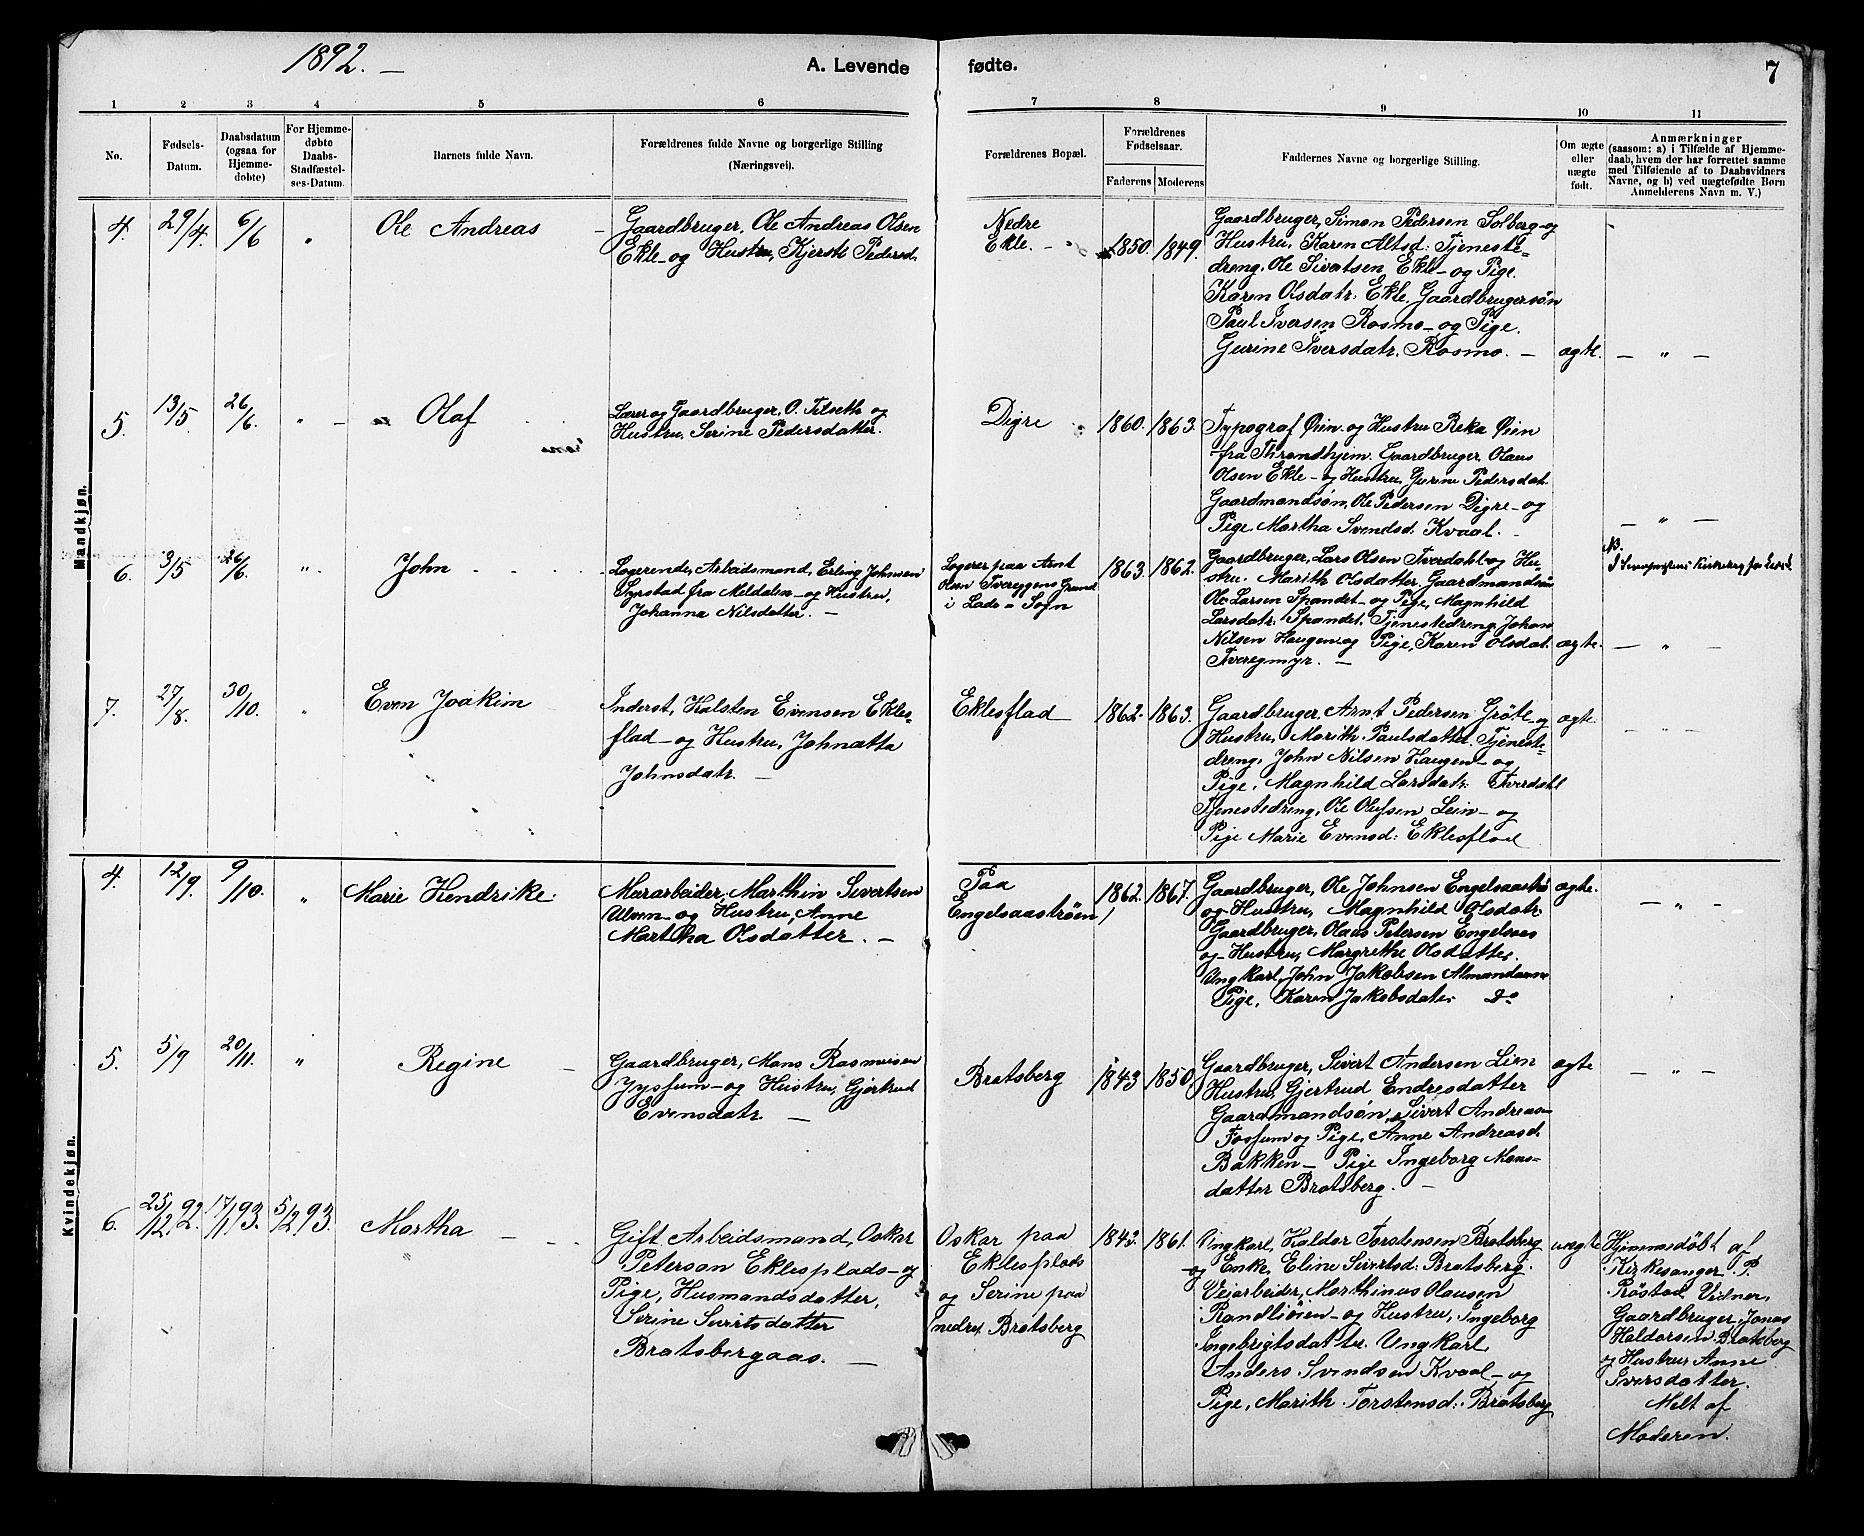 1892. —
A. Levende fødte.
7
1 2 3 4 5 6 7 8 9 10 11
No.
Fødsels-
Datum.
Daabsdatum
(ogsaa for
Hjemme-
døbte)
For Hjemme-
døbte
Daabs-
Stadfæstel-
ses-Datum.
Barnets fulde Navn.
Forældrenes fulde Navne og borgerlige Stilling
(Næringsvei).
Forældrenes Bopæl.
Forældrenes
Fødselsaar.
Faderens Moderens
Faddernes Navne og borgerlige Stilling.
Om ægte
eller
uægte
født.
Anmærkninger
(saasom: a) i Tilfælde af Hjemme-
daab, hvem der har forrettet samme
med Tilføiende af to Daabsvidners
Navne, og b) ved uægtefødte Børn
Anmelderens Navn m. V.)
Mandkjøn.
4. 29/4. 6/6 „ Ole Andreas —
Gaardbruger, Ole Andreas Olsen
Ekle- og Hustru, Kjersti Pedersd.
Nedre
Ekle. —
1850. 1849.
Gaardbruger, Simon Pedersen Solberg-og
Hustru, Karen Altsd: Tjeneste=
dreng, Ole Sivertsen Ekle- og Pige.
Karen Olsdatr. Ekle. Gaardbrugersøn
Paul Iversen Rosmo- og Pige.
Gurine Iversdatr. Rosmo. —
ægte. — „ —
5. 13/5. 26/6. „ — Olaf
Lærer og Gaardbruger, O. Tilseth og
Hustru, Serine Pedersdatter.
Digre
1860. 1863.
Typograf Øien og Hustru Reka Øien
fra Throndhjem. Gaardbruger, Olaus
Olsen Ekle- og Hustru, Gurine Pedersdat.
Gaardmandsøn, Ole Pedersen Digre- og
Pige, Martha Svendsd. Kvaal. -
— „ —
6. 3/5 26/6. „ John
Logerende, Arbeidsmand, Erling Johnsen
Syrstad fra Meldalen- og Hustru,
Johanna Nilsdatter. —
Logerer paa Arnt
Olsen Tvereggens Grund
i Lade - Sogn
1863. 1862.
Gaardbruger, Lars Olsen Tverdahl og Hu-
stru. Marith Olsdatter, Gaardmandsøn
Ole Larsen Spandet- og Pige, Magnhild
Larsdatr. Spandet. Tjenestedreng, Johan
Nilsen Haugen og Pige, Karen Olsdat.
Tveregmyr. —
ægte. — „ —
7. 27/8. 30/10. „ Even Joakim
Inderst, Halsten Evensen Ekles-
flad- og Hustru, Johnætta
Johnsdatr. —
Eklesflad
1862. 1863.
Gaardbruger, Arnt Pedersen Grøte-og
Hustru, Marith Paulsdatter. Tjeneste=
dreng, John Nilsen Haugen- og
Pige, Magnhild Larsdatr. Tverdahl
Tjenestedreng, Ole Olufsen Lein- og
Pige Marie Evensd: Eklesflad
ægte. — „ —
Kvindekjøn.
4. 12/9. 9/10. „ Marie Hendrike.
Murarbeider, Marthin Sivertsen
Ulven- og Hustru, Anne
Martha Olsdatter. —
Paa
Engelsaastrøen
1862. 1867.
Gaardbruger, Ole Johnsen Engelsaastrø
og Hustru, Magnhild Olsdatr.
Gaardbruger, Olaus Petersen Engelsaas
og Hustru, Margrethe Olsdatter.
Ungkarl, John Jakobsen Almandaune
Pige, Karen Jakobsdater Do
ægte. — „ —
5. 5/9 20/11. „ Regine —
Gaardbruger, Mons Rasmusen
Jysfum- og Hustru, Gjertrud
Evensdatr. —
Bratsberg
1843 1850.
Gaardbruger, Sivert Andersen Lien
Hustru, Gjertrud Endresdatter
Gaardmandsøn, Sivert Andreasen
Fossum og Pige, Anne Andreasd.
Bakken- Pige Ingeborg Mons-
datter Bratsberg. —
ægte — „ —
6. 25/12 92. 17/1 93. 5/2 93. Martha — —
Gift Arbeidsmand, Oskar
Peterson Eklesplads-og
Pige, Husmandsdatter,
Serine Sivertsdatter
Bratsbergaas. —
Oskar paa
Eklesplads
og Serine paa
nedre Bratsberg
1843. 1861.
Ungkarl, Haldor Torstensen Bratsberg
og Enke, Eline Sivertsd: Bratsberg.
Veiarbeider, Marthinus Olausen
Randliøien- og Hustru, Ingeborg
Ingebrigtsdatter. Ungkarl
Anders Svendsen Kvaal- og
Pige, Marith Torstensd: Bratsberg
uægte
Hjemmedøbt af
Kirkesanger P.
Røstad Vidner,
Gaardbruger, Jonas
Haldorsen Bratsberg
og Hustru, Anne
Iversdatter.
Melt af
Moderen.